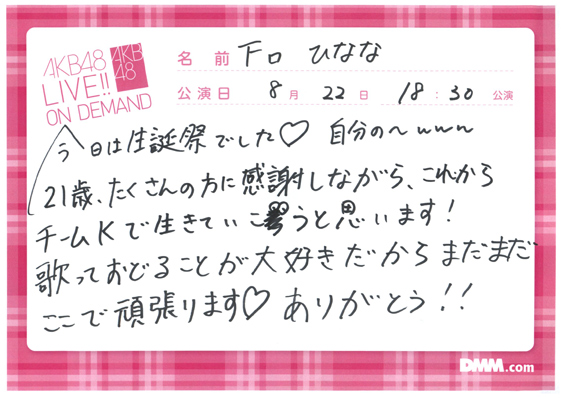 AKB48
LIVE!!
ON DEMAND
AKB
48
名前 下口 ひなな
公演日 8月 22日 18:30 公演
今日は生誕祭でした♡ 自分のへwww
21歳、たくさんの方に感謝しながら、これから
チームKで生きていこうと思います!
歌っておどることが大好きだからまたまだ
ここで頑張ります♡ ありがとう!!
DMM.com